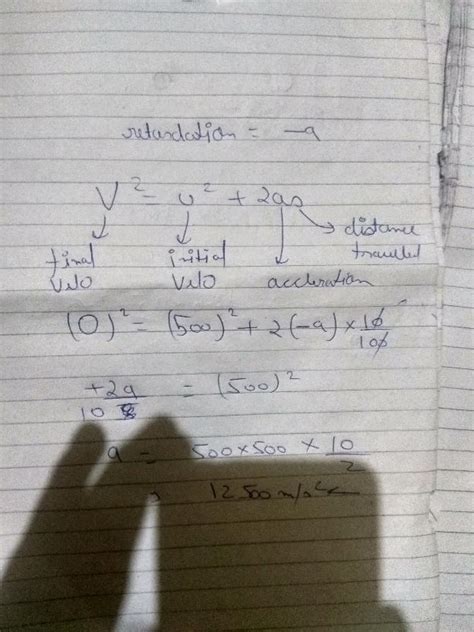 retardation = -a
V² = u² + 2as
final velo
initial velo
accleration
distance travelled
(0)² = (500)² + 2(-a) × 10/100
+2a/10 = (500)²
a = 500×500 × 10/2
12500 m/s²